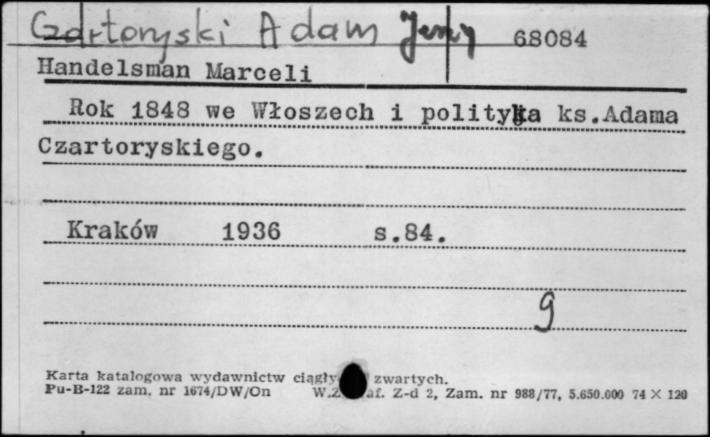 Czartoryski Adam Jerzy 68084
Handelsman Marceli
Rok 1848 we Włoszech i polityka ks.Adama
Czartoryskiego.
Kraków 1936 s.84.
g
Karta katalogowa wydawnictw ciągły zwartych.
Pu-B-122 zam. nr 1674/DW/On W.Z. af. Z-d 2, Zam. nr 988/77, 5.650.000 74 × 120